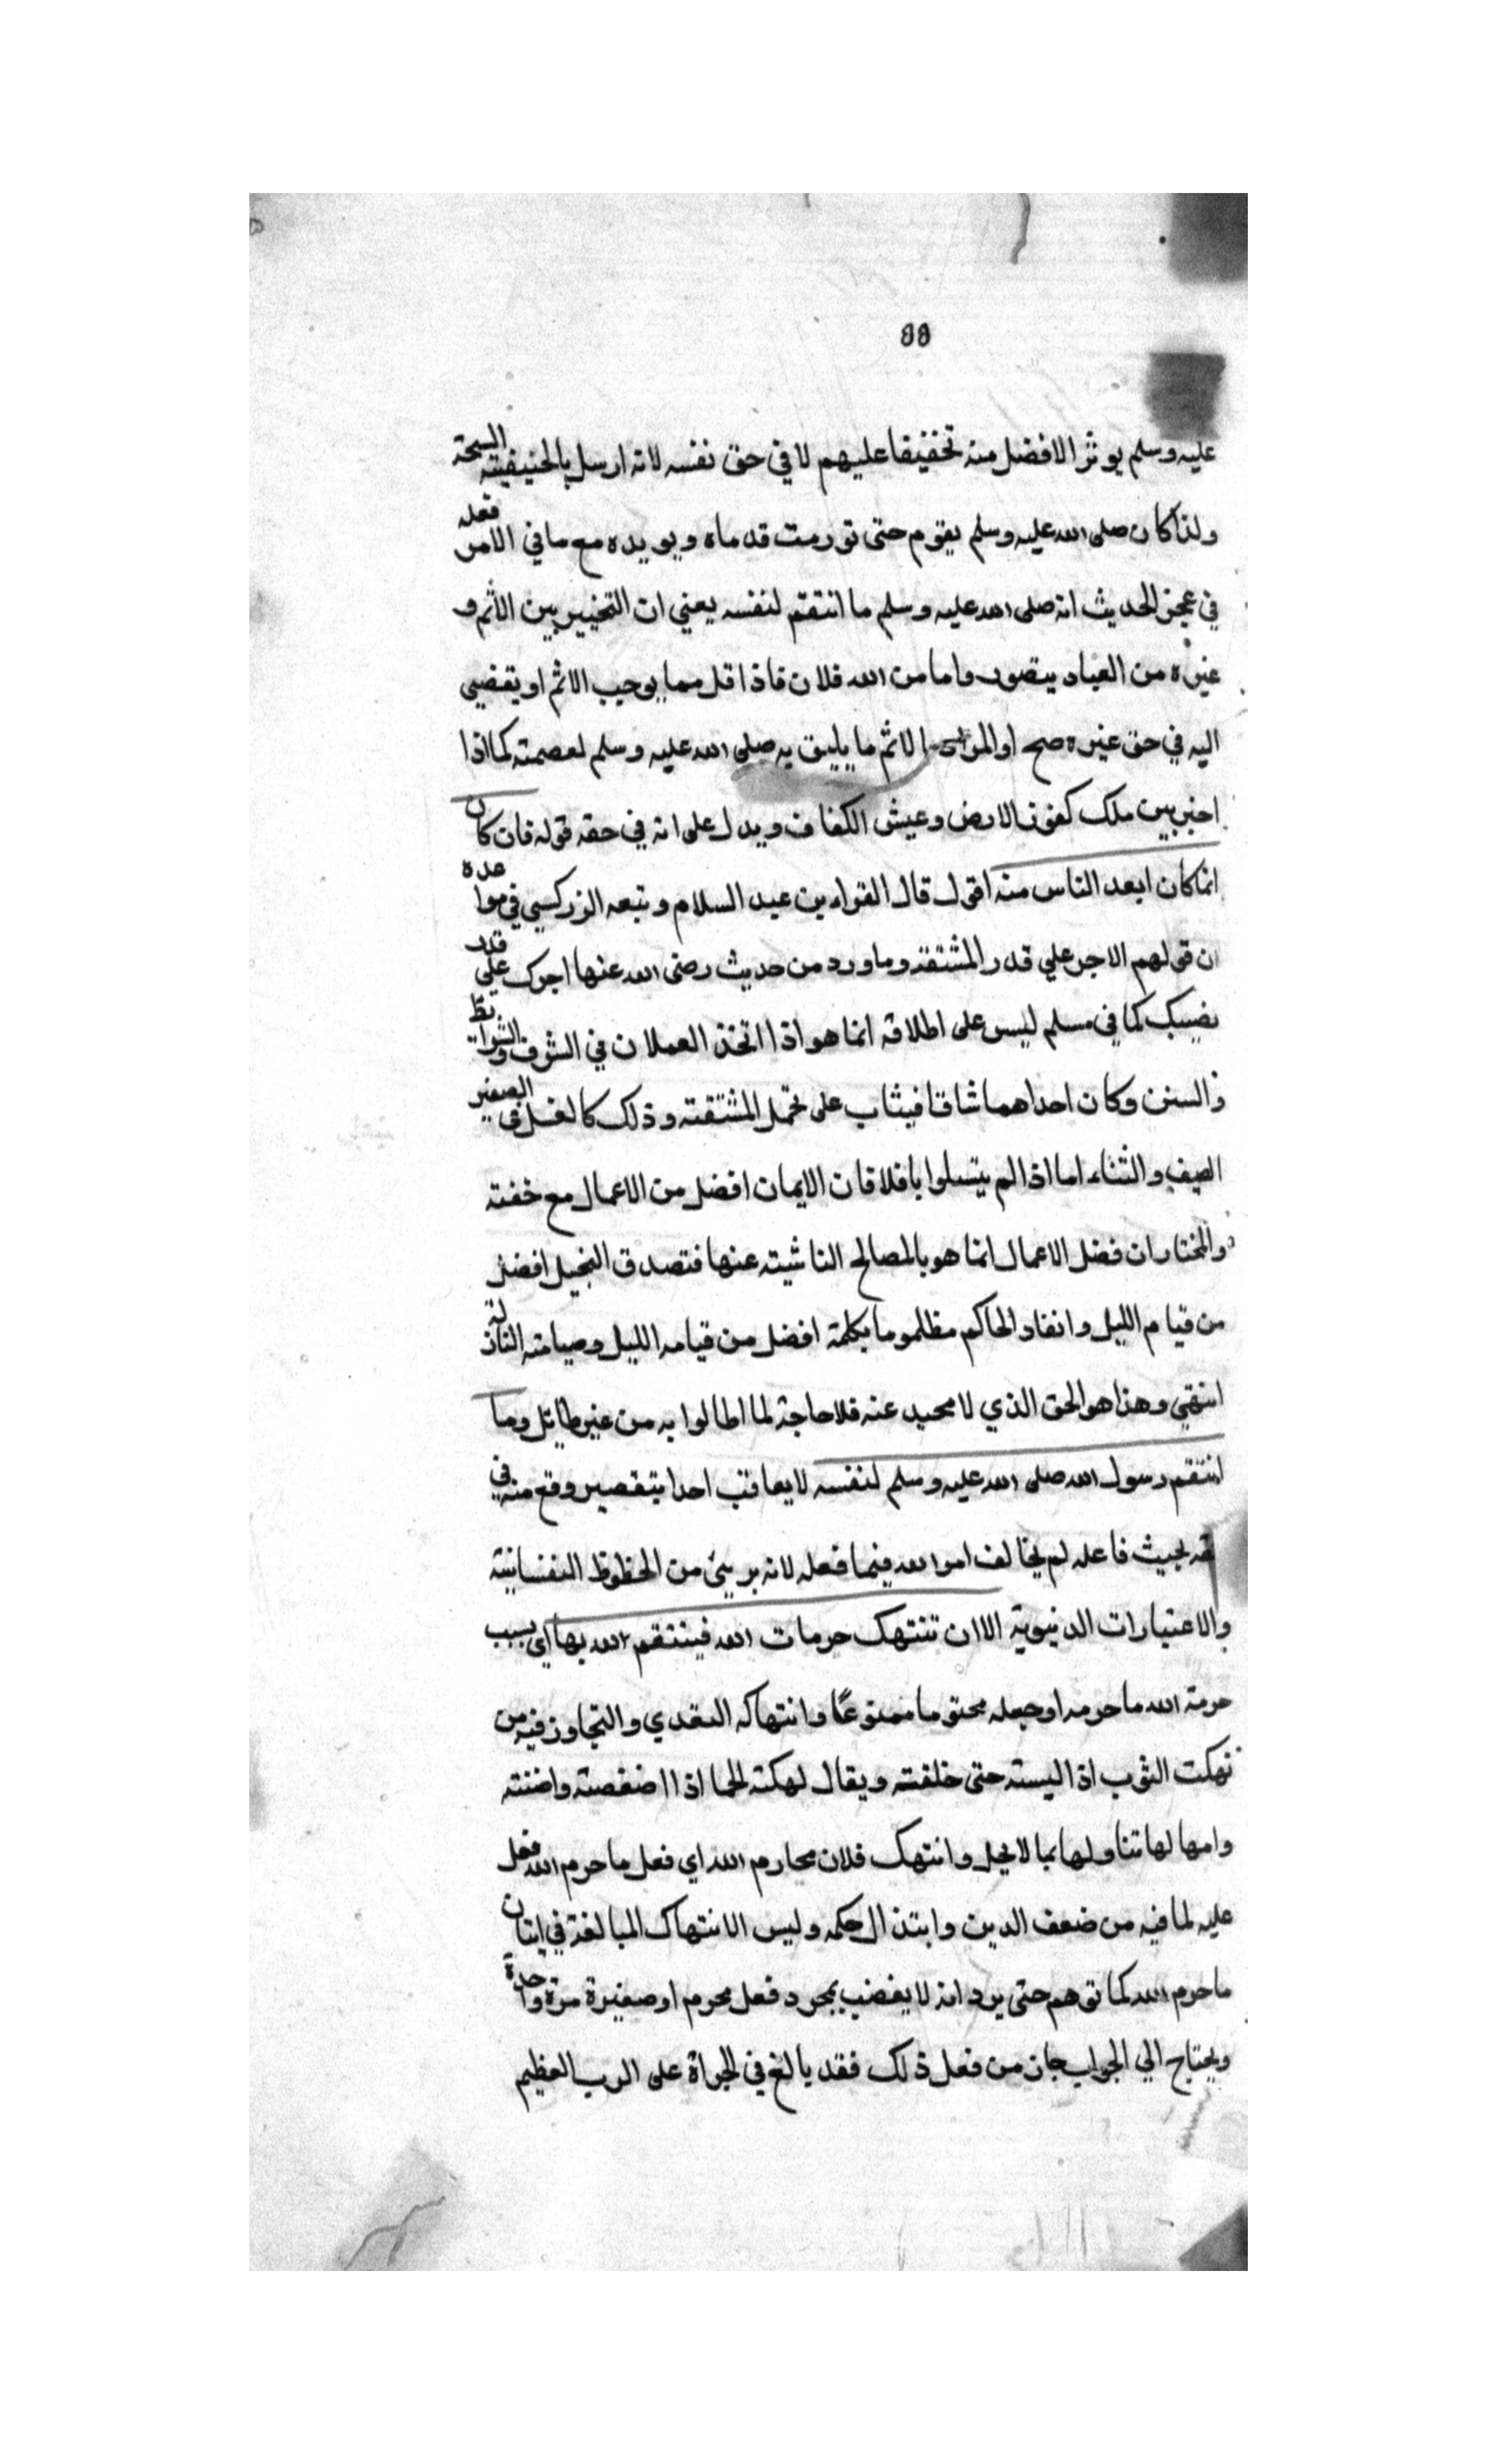 88
عليه وسلم يوثر الافضل منه تخفيفا عليهم لا في حق نفسه لانه ارسل بالحنيفيته السمحة
ولذا كان صلى الله عليه وسلم يقوم حتى تورمت قدماه ويويده مع ما في الامر فعله
في عجز الحديث انه صلى الله عليه وسلم ما انتقم لنفسه يعني ان التخيير بين الاثم و
غيره من العباد يتصور واما من الله فلان فاذا قل مما يوجب الاثم او يقضي
اليه في حق غيره صح او المراد بالاثم ما يليق به صلى الله عليه وسلم لعصمته كما اذا
اخبر بين ملك كنوز الارض وعيش الكفاف ويدل على انه في حقه قوله فان كان
انما كان ابعد الناس منه اقول قال القواء بن عبد السلام وتبعه الزركسي في قواعده
ان قولهم الاجر علي قدر المشتقة وما ورد من حديث رضى الله عنها اجرك على قدر
نصيبك كما في مسلم ليس على اطلاقه انما هو اذا اتخذ العملان في الشرف والشرايط
والسنن وكان احداهما شاقا فيثاب على تحمل المشتقته وذلك كالغسل في الصغير
الصيف والشتاء اما اذا لم يتسلوا بافلا فان الايمان افضل من الاعمال مع خفته
والمختار ان فضل الاعمال انما هو بالمصالح الناشيته عنها فتصدق البخيل افضل
من قيام الليل وانفاد الحاكم مظلموما بكلمة افضل من قيامه الليل وصيامته النافلة
انتهي وهذا هو الحق الذي لا محيد عنه فلا حاجة لما اطالوا به من غير طايل وما
انتقم رسول الله صلى الله عليه وسلم لنفسه لا يعاقب احدا بتقصير وقع منه في
حقه بحيث فاعله لم يخالف امر الله فيما فعله لانه بريئ من الحظوظ النفسانيته
والاعتبارات الدنيوية الا ان تنتهك حرمات الله فينتقم لله بها اي بسبب
حرمة الله ما حرمه او جعله محتوما ممنوعًا وانتهاكه التعدي والتجاوز فيه من
نهكت الثوب اذا ليسته حتى خلفته ويقال لهكته الحما اذا اضغصته واضنته
وامها لها تناولها بما لا يحل وانتهك فلان محارم الله اي فعل ما حرم الله فعل
عليه لما فيه من ضعف الدين وابتذال حكمه وليس الانتهاك المبالغة في اتيان
ما حرم الله كما توهم حتى يرد انه لا يغضب بمجرد فعل محرم او صغيرة مرة واحدة
ويحتاج الي الجواب بان من فعل ذلك فقد بالغ في الجراة على الرب العظيم